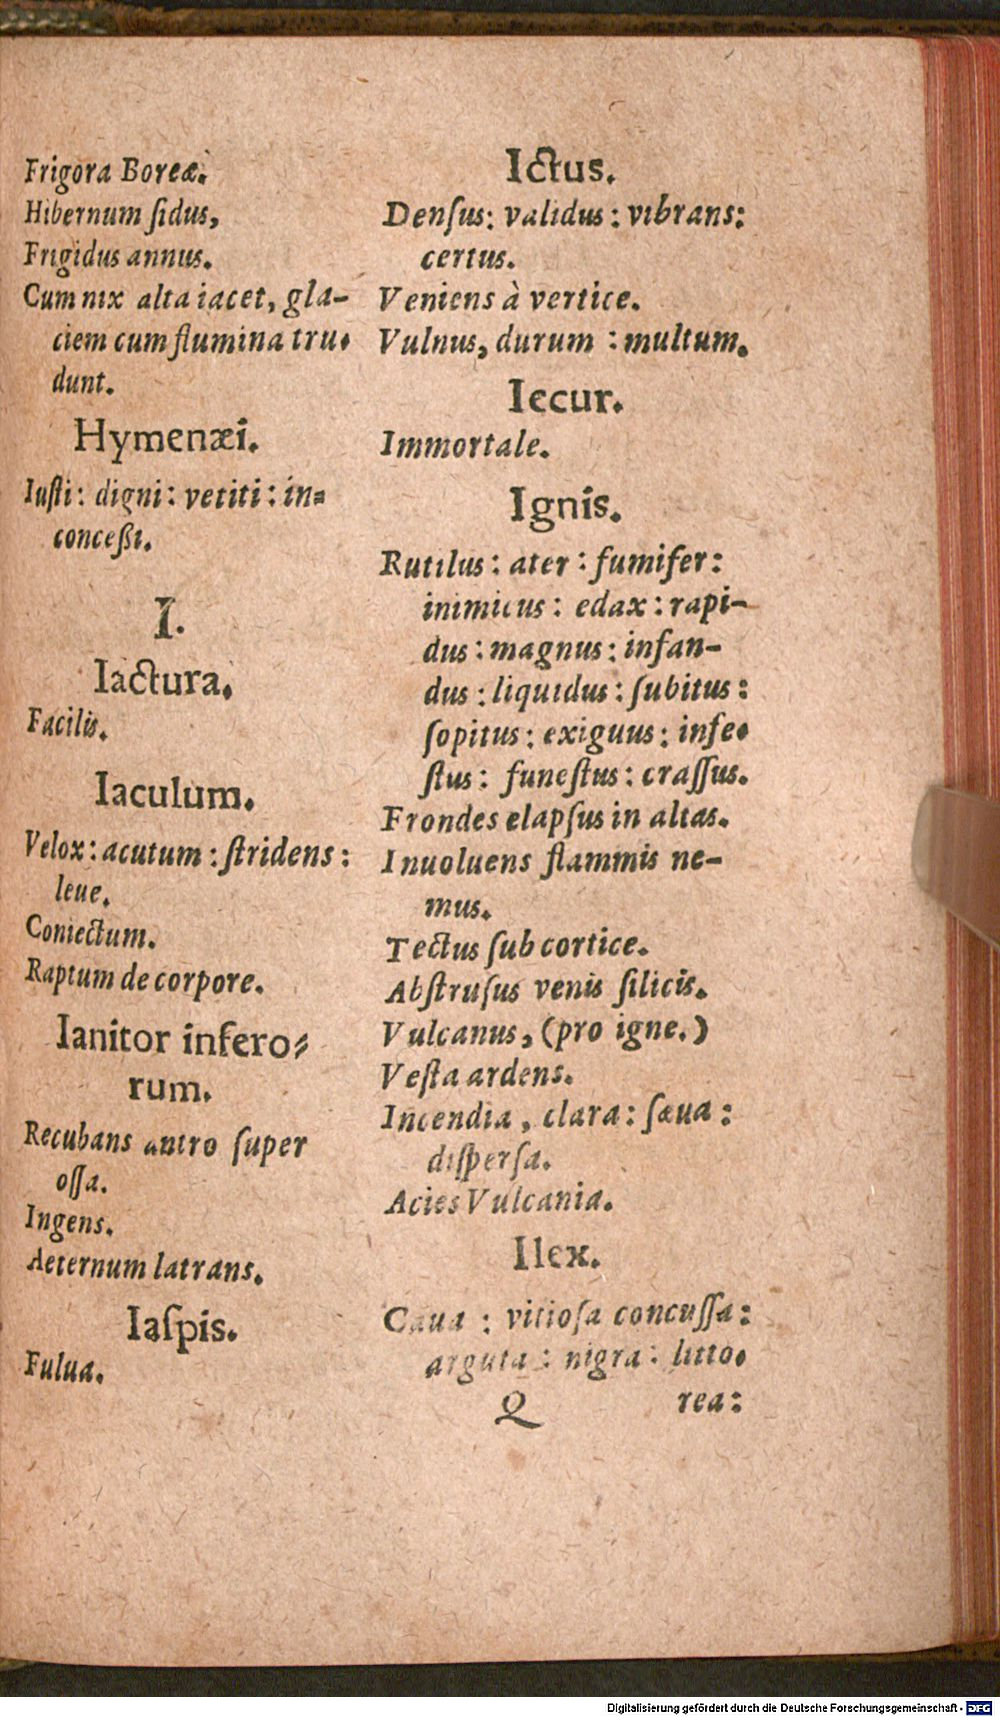 Frigora Boreæ.
Hibernum ſidus,
Frigidus annus.
Cum nix alta iacet, gla-
ciem cum flumina tru-
dunt.
Hymenæi.
Iuſti: digni: vetiti: in-
conceßi.
I.
Iactura.
Facilis.
Iaculum.
Velox: acutum: ſtridens:
leue.
Coniectum.
Raptum de corpore.
Ianitor infero-
rum.
Recubans antro ſuper
oſſa.
Ingens.
Aeternum latrans.
Iaſpis.
Fulua.
Ictus.
Denſus: validus: vibrans:
certus.
Veniens à vertice.
Vulnus, durum: multum.
Iecur.
Immortale.
Ignis.
Rutilus: ater: fumifer:
inimicus: edax: rapi-
dus: magnus: infan-
dus: liquidus: ſubitus:
ſopitus: exiguus: infe-
ſtus: funeſtus: craſſus.
Frondes elapſus in altas.
Inuoluens flammis ne-
mus.
Tectus ſub cortice.
Abſtruſus venis ſilicis.
Vulcanus, (pro igne.)
Veſta ardens.
Incendia, clara: ſæua:
diſperſa.
Acies Vulcania.
Ilex.
Caua: vitioſa concuſſa:
arguta: nigra: litto-
Q rea:
Digitalisierung gefördert durch die Deutsche Forschungsgemeinschaft - DFG